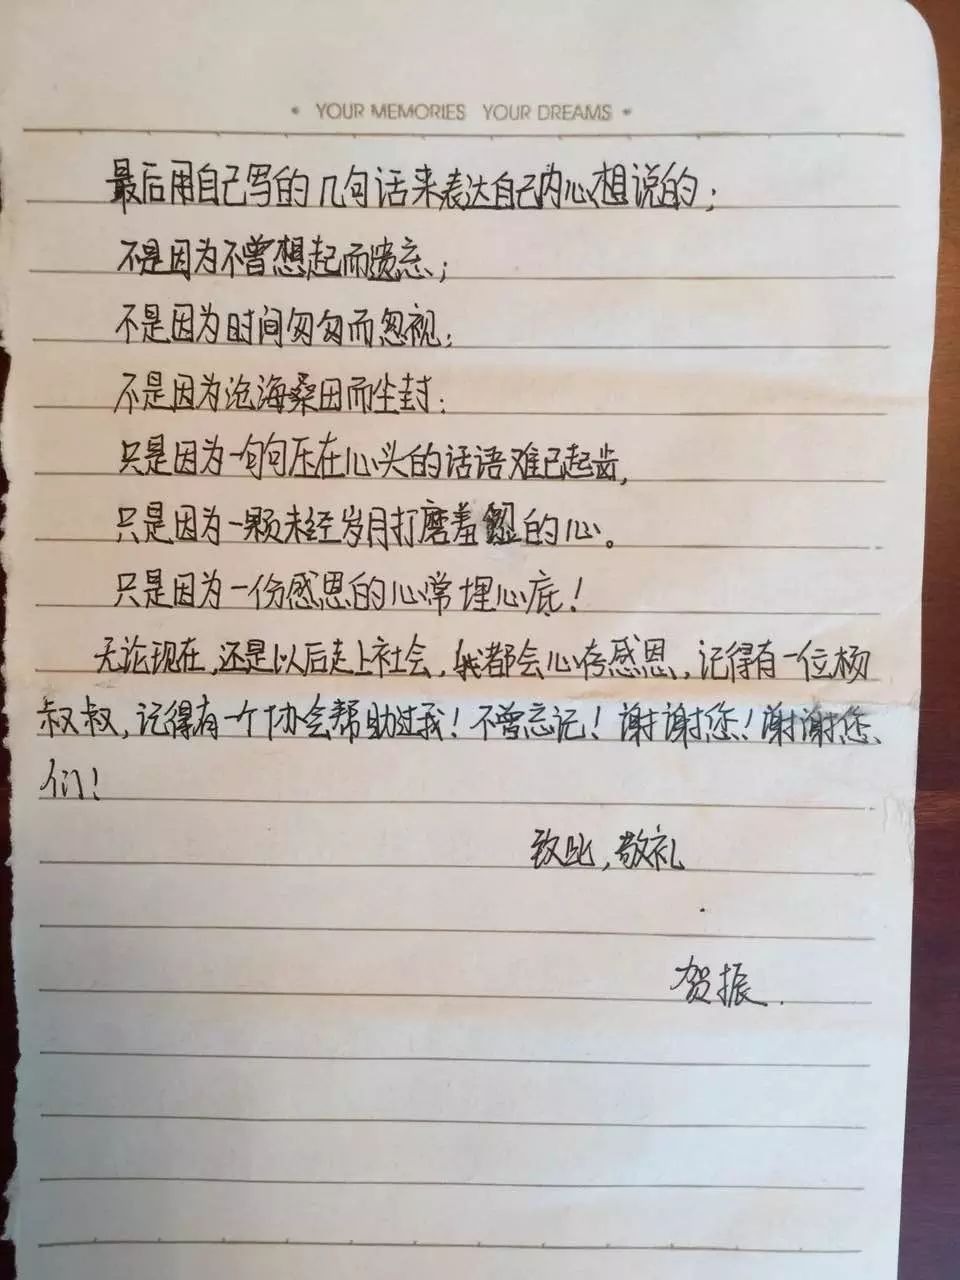 • YOUR MEMORIES YOUR DREAMS •
最后用自己写的几句话来表达自己内心想说的;
不是因为不曾想起而遗忘;
不是因为时间匆匆而忽视;
不是因为沧海桑田而尘封;
只是因为一句句压在心头的话语难已起齿,
只是因为一颗未经岁月打磨羞涩的心。
只是因为一份感恩的心常埋心底!
无论现在,还是以后走上社会,我都会心存感恩,记得有一位杨
叔叔,记得有一个协会帮助过我!不曾忘记!谢谢您!谢谢您
们!
致此,敬礼
贺振.